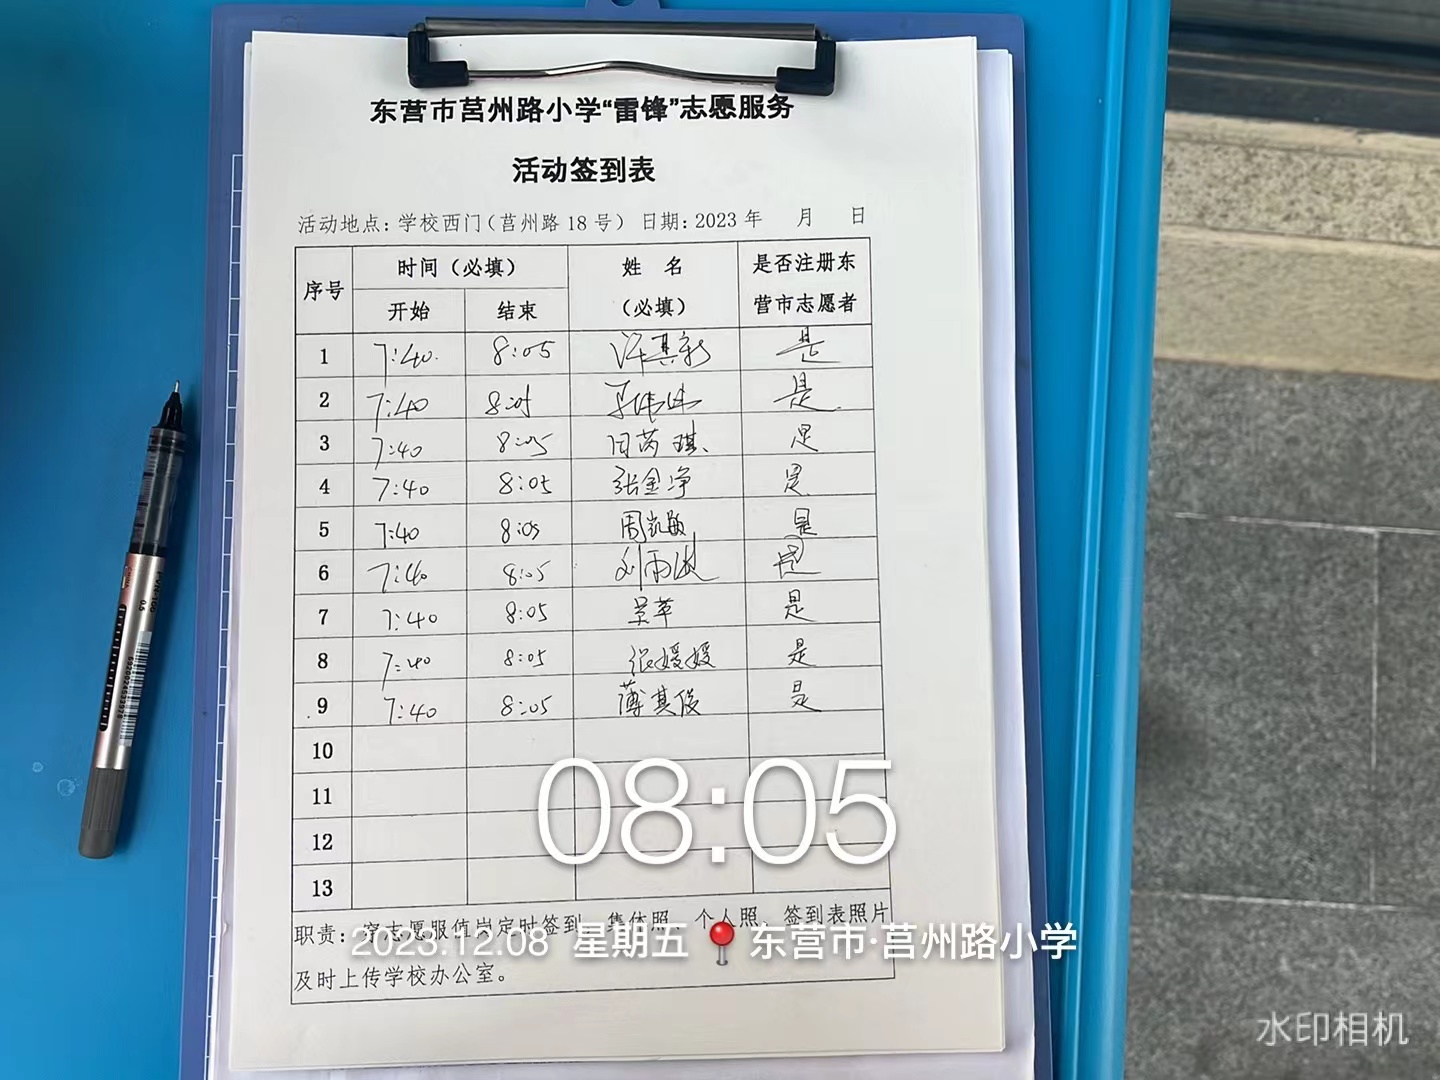 东营市莒州路小学“雷锋”志愿服务
活动签到表
活动地点：学校西门（莒州路18号） 日期：2023年 月 日
序号 时间（必填） 姓 名 是否注册东
开始 结束 （必填） 营市志愿者
1 7:40 8:05 是
2 7:40 8:05 是
3 7:40 8:05 是
4 7:40 8:05 张金净 是
5 7:40 8:05 周凯敏 是
6 7:40 8:05 是
7 7:40 8:05 景苹 是
8 7:40 8:05 张媛媛 是
9 7:40 8:05 薄其俊 是
10
11
12
13
08:05
职责：穿志愿服值岗定时签到、集体照、个人照、签到表照片
及时上传学校办公室。
2023.12.08 星期五 东营市·莒州路小学
水印相机